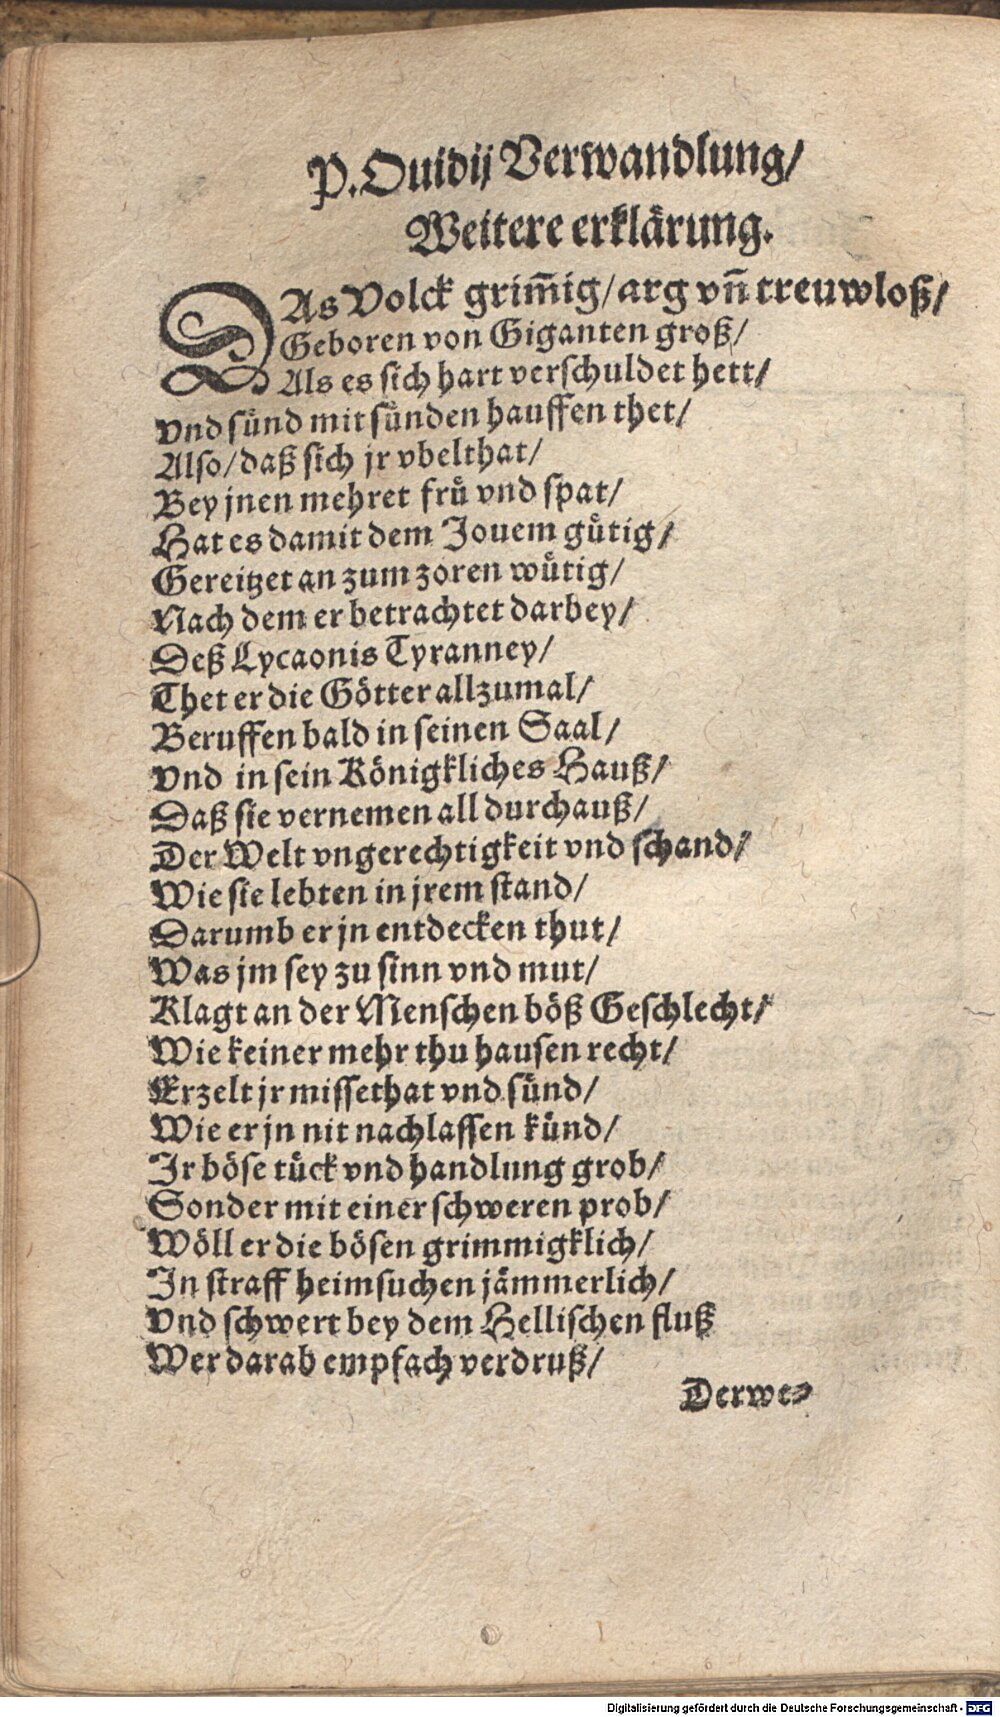 P. Ouidij Verwandlung/
Weitere erklärung.
DAs Volck grim̃ig/ arg vn̄ treuwloß/
Geboren von Giganten groß/
Als es sich hart verschuldet hett/
Vnd sünd mit sünden hauffen thet/
Also/ daß sich jr vbelthat/
Bey jnen mehret frů vnd spat/
Hat es damit dem Jouem gütig/
Gereitzet an zum zoren wütig/
Nach dem er betrachtet darbey/
Deß Lycaonis Tyranney/
Thet er die Götter allzumal/
Beruffen bald in seinen Saal/
Vnd in sein Königkliches Hauß/
Daß sie vernemen all durchauß/
Der Welt vngerechtigkeit vnd schand/
Wie sie lebten in jrem stand/
Darumb er jn entdecken thut/
Was jm sey zu sinn vnd mut/
Klagt an der Menschen böß Geschlecht/
Wie keiner mehr thu hausen recht/
Erzelt jr missethat vnd sünd/
Wie er jn nit nachlassen künd/
Ir böse tück vnd handlung grob/
Sonder mit einer schweren prob/
Wöll er die bösen grimmigklich/
In straff heimsuchen jämmerlich/
Vnd schwert bey dem Hellischen fluß
Wer darab empfach verdruß/
Derwe⸗
Digitalisierung gefördert durch die Deutsche Forschungsgemeinschaft - DFG